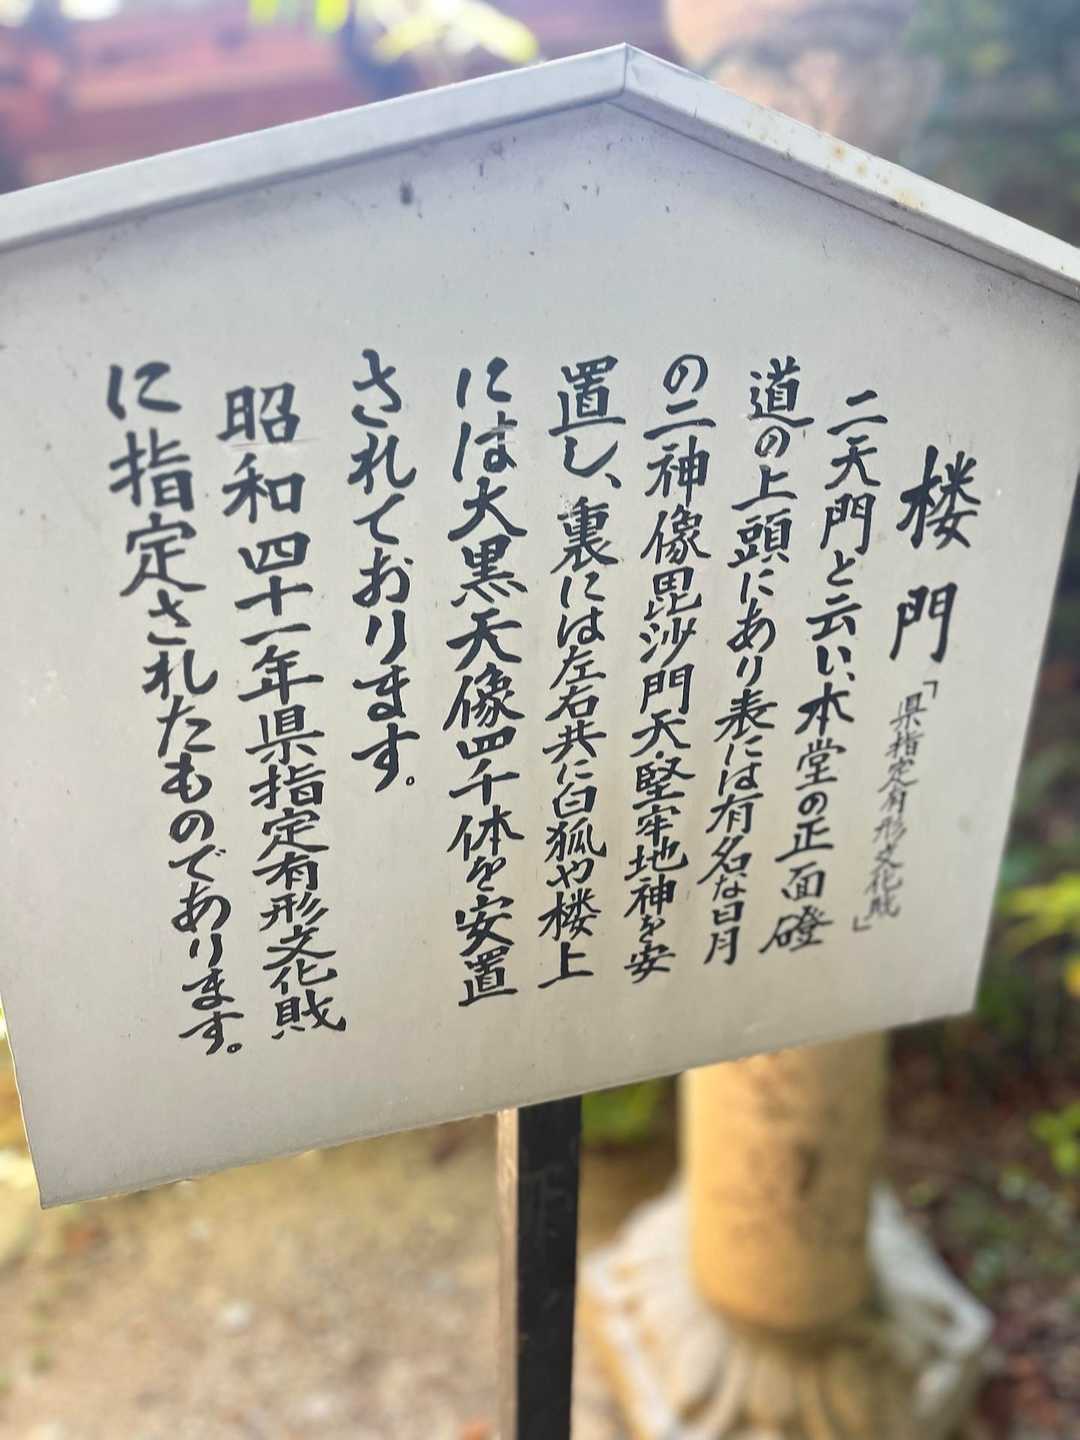 楼門「県指定有形文化財」
二天門と云い、本堂の正面磴
道の上頭にあり表には有名な日月
の二神像毘沙門天・堅牢地神を安
置し、裏には左右共に白狐や楼上
には大黒天像四千体を安置
されております。
昭和四十一年県指定有形文化財
に指定されたものであります。